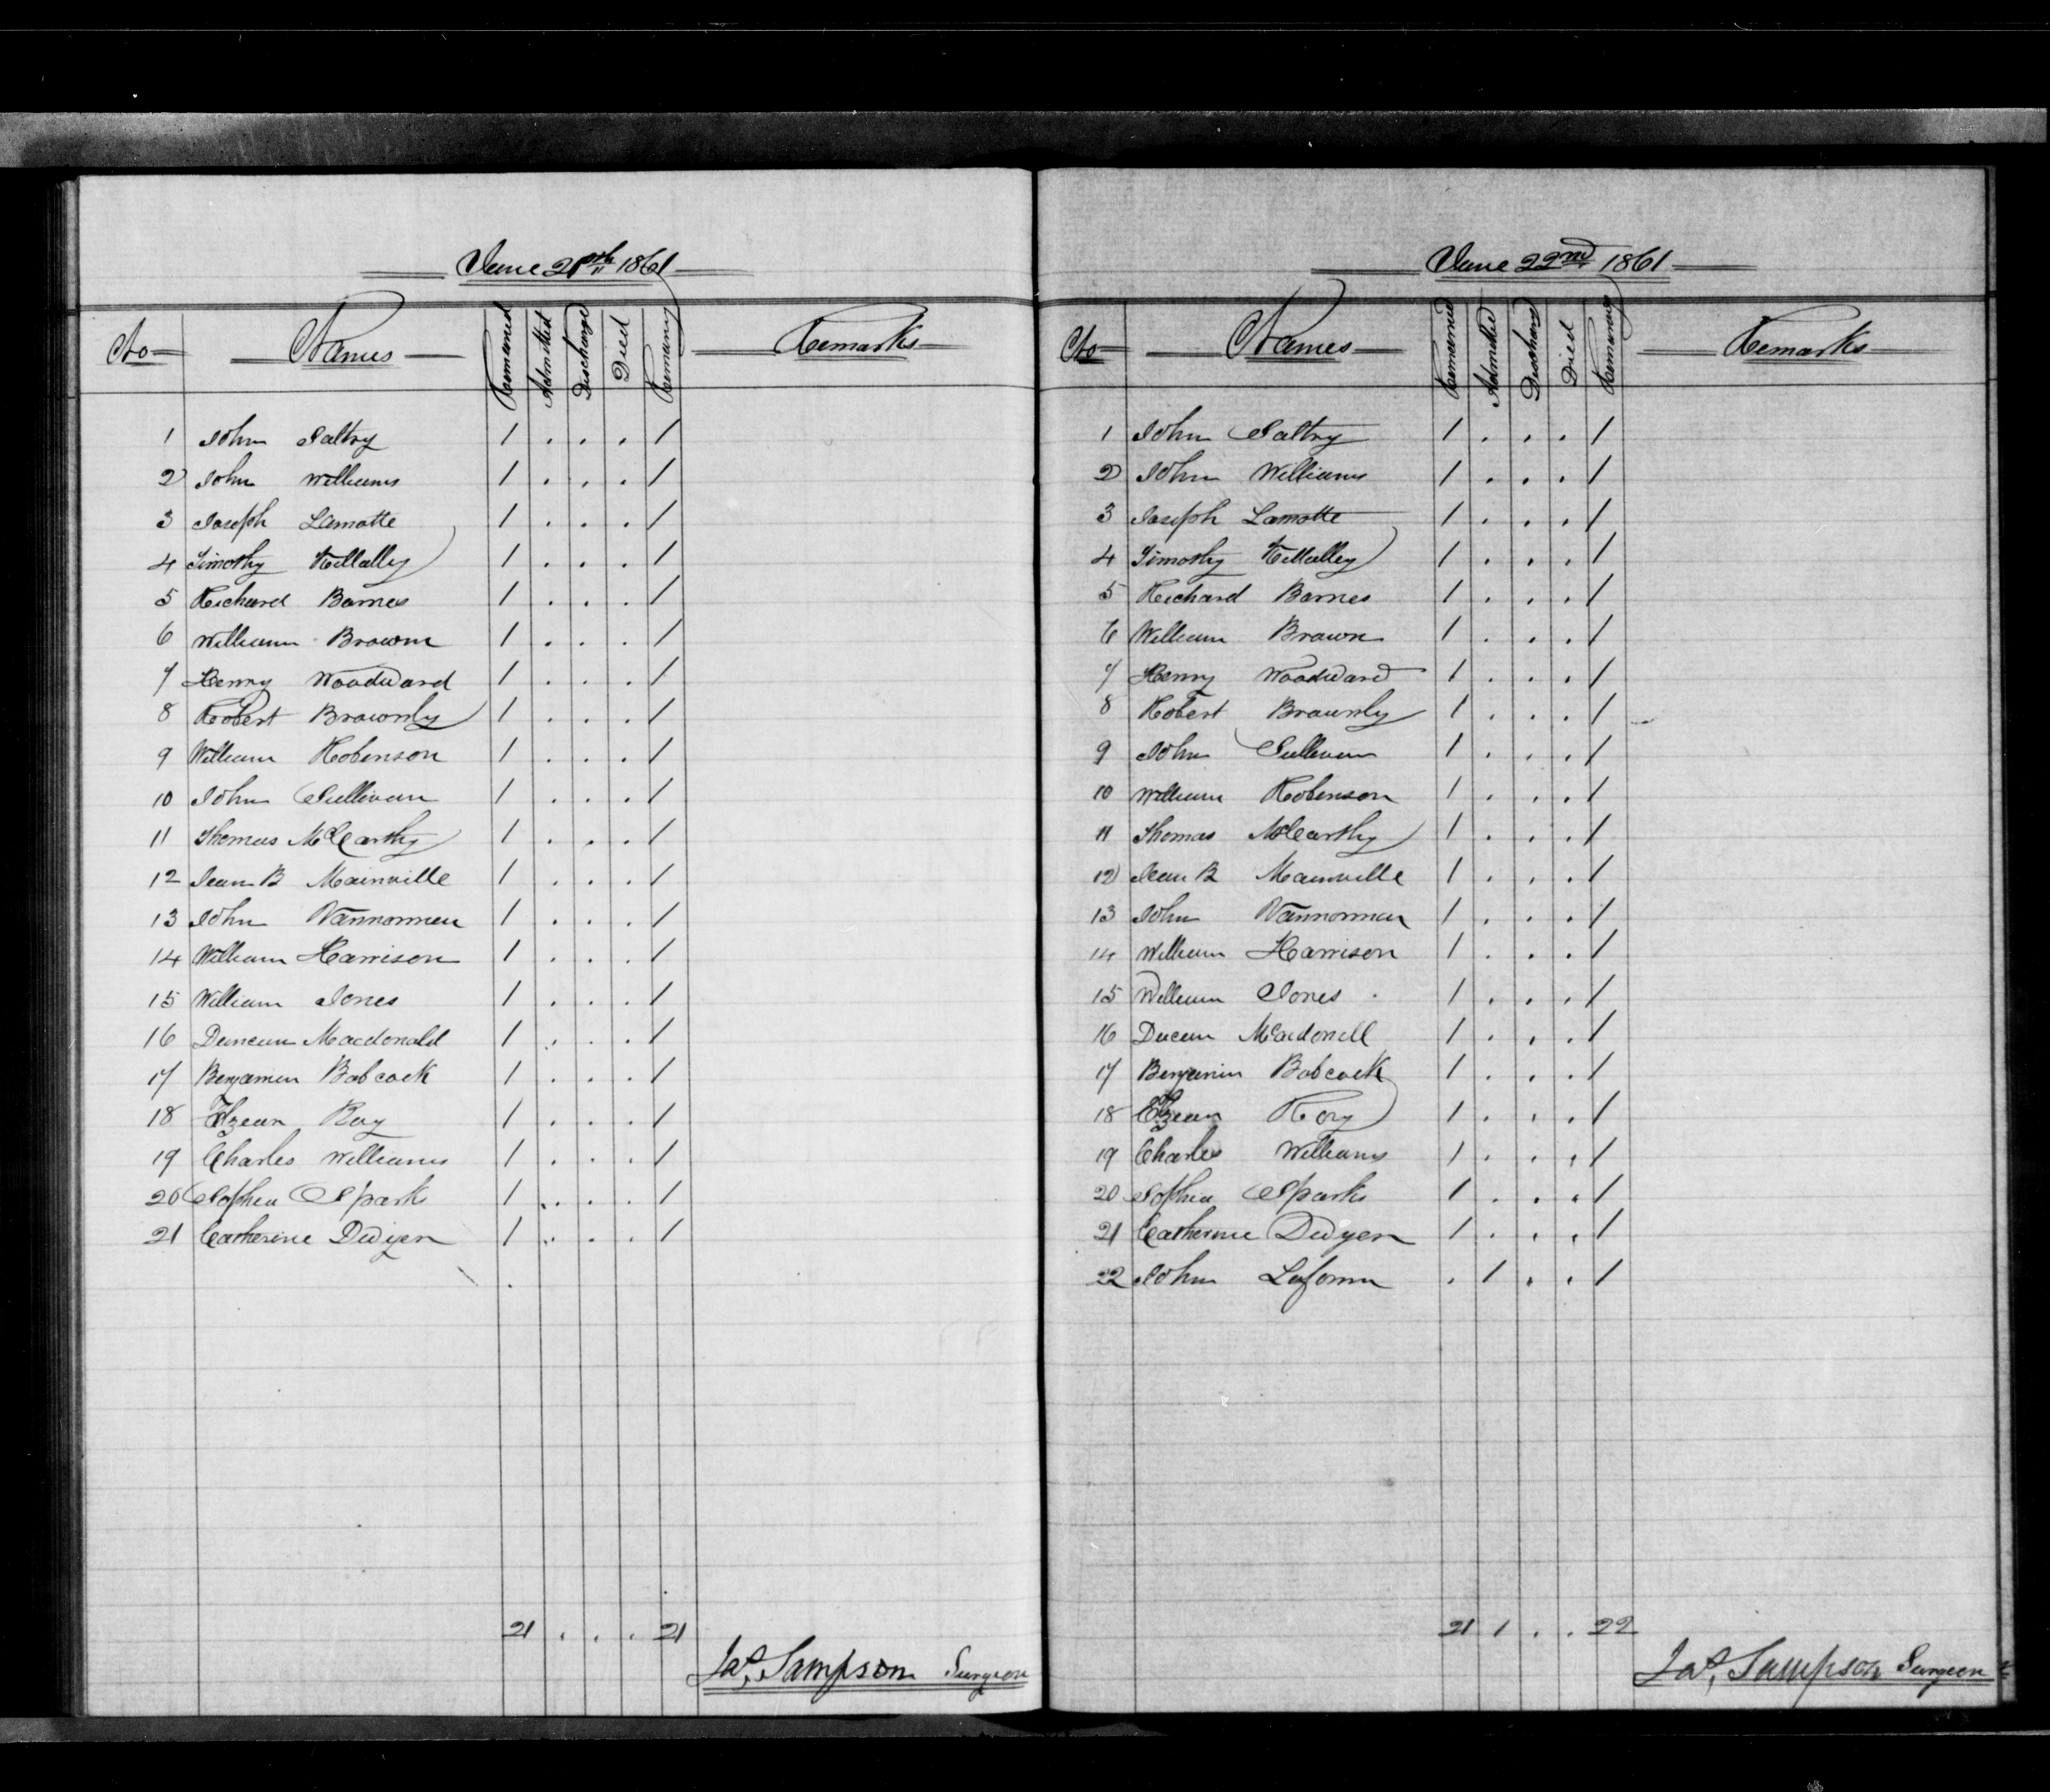 June 21st 1861
No Names Remained Admitted Discharge Died Remaining Remarks
1 John Saltry 1 . . . 1
2 John Williams 1 . . . 1
3 Joseph Lamotte 1 . . . 1
4 Timothy 1 . . . 1
5 Richard Barnes 1 . . . 1
6 William Brown 1 . . . 1
7 Henry Woodward 1 . . . 1
8 Robert Brownly 1 . . . 1
9 William Robenson 1 . . . 1
10 John Sullivan 1 . . . 1
11 Thomas McCarthy 1 . . . 1
12 Jean B Mainville 1 . . . 1
13 John Vannorman 1 . . . 1
14 William Harrison 1 . . . 1
15 William Jones 1 . . . 1
16 Duncan Macdonald 1 . . . 1
17 Benjamin Babcock 1 . . . 1
18 Elzear Roy 1 . . . 1
19 Charles Williams 1 . . . 1
20 Sophia Spark 1 . . . 1
21 Catherine Dwyer 1 . . . 1
21 . . . 21
Jas. Sampson Surgeon
June 22nd 1861
No Names Remained Admitted Discharg Died Remaining Remarks
1 John Saltry 1 . . . 1
2 John Williams 1 . . . 1
3 Joseph Lamotte 1 . . . 1
4 Timothy 1 . . . 1
5 Richard Barnes 1 . . . 1
6 William Brown 1 . . . 1
7 Henry Woodward 1 . . . 1
8 Robert Brownly 1 . . . 1
9 John Sullivan 1 . . . 1
10 William Robenson 1 . . . 1
11 Thomas McCarthy 1 . . . 1
12 Jean B Mainville 1 . . . 1
13 John Vannorman 1 . . . 1
14 William Harrison 1 . . . 1
15 William Jones 1 . . . 1
16 Ducan Macdonell 1 . . . 1
17 Benjamin Babcock 1 . . . 1
18 Elzear Roy 1 . . . 1
19 Charles Williams 1 . . . 1
20 Sophia Sparks 1 . . . 1
21 Catherine Dwyer 1 . . . 1
22 John . 1 . . 1
21 1 . . 22
Jas. Sampson Surgeon